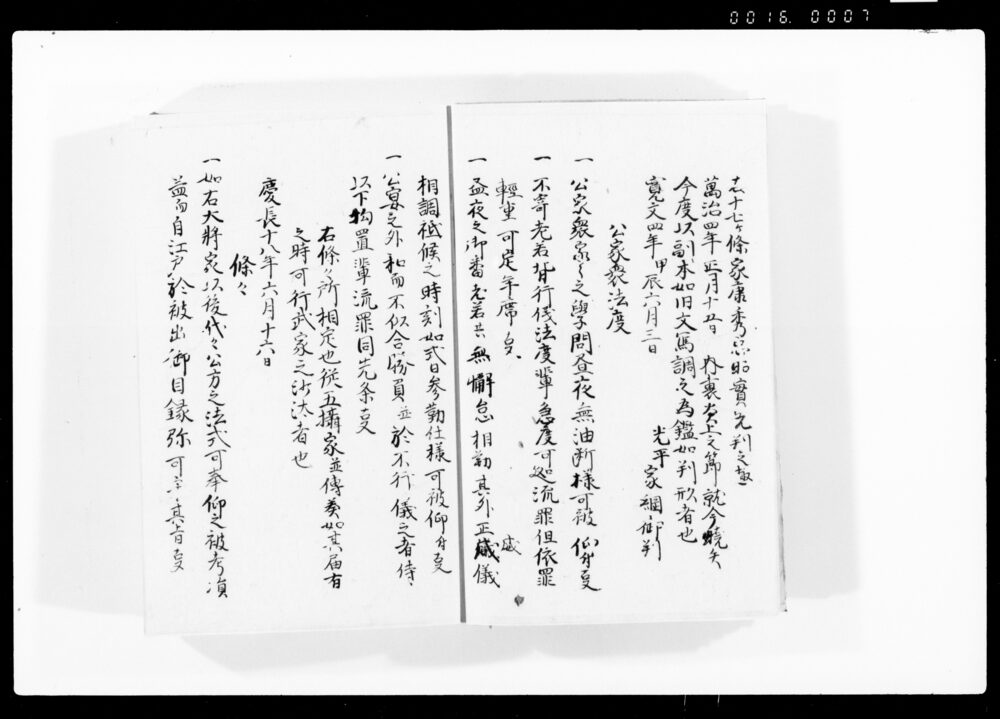 0016. 0007
右十七ヶ條家康秀忠昭實先判之趣
萬治四年正月十五日内裏炎上之節就今燒失
今度以副本如旧文写調之為鑑如判形者也
寛文四年甲辰六月三日
光平 家綱御判
公家衆法度
一 公家衆家々之學問昼夜無油断様可被仰付夏
一 不寄老若背行儀法度輩急度可処流罪但依罪
輕重可定年序夏
一 昼夜之御番老若共無懈怠相勤其外正威儀
威
相調祗候之時刻如式日参勤仕様可被仰付夏
一 公宴之外私而不似合勝負並於不行儀之者侍
以下抱置輩流罪同先条夏
右條々所相定也従五攝家並傳奏如其届有
之時可行武家之沙汰者也
慶長十八年六月十六日
條々
一 如右大將家以後代々公方之法式可奉仰之被考損
益而自江戸於被出御目録弥可守其旨夏